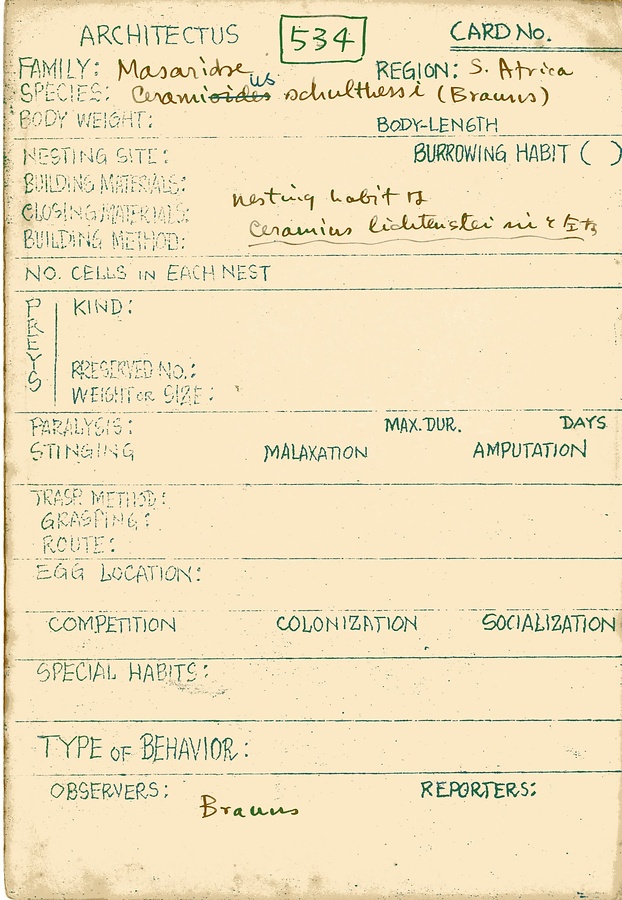 ARCHITECTUS 534 CARD No.
FAMILY: Masaridae REGION: S. Africa
SPECIES: Ceramioides us schulthessi (Brauns)
BODY WEIGHT: BODY-LENGTH
NESTING SITE: BURROWING HABIT ( )
BUILDING MATERIALS:
nesting habit は
CLOSING MATERIALS:
Ceramius lichtensteini
BUILDING METHOD:
NO. CELLS IN EACH NEST
PREYS
KIND:
PRESERVED NO.:
WEIGHT or SIZE:
PARALYSIS: MAX. DUR. DAYS
STINGING MALAXATION AMPUTATION
TRASP. METHOD:
GRASPING:
ROUTE:
EGG LOCATION:
COMPETITION COLONIZATION SOCIALIZATION
SPECIAL HABITS:
TYPE OF BEHAVIOR:
OBSERVERS: REPORTERS:
Brauns